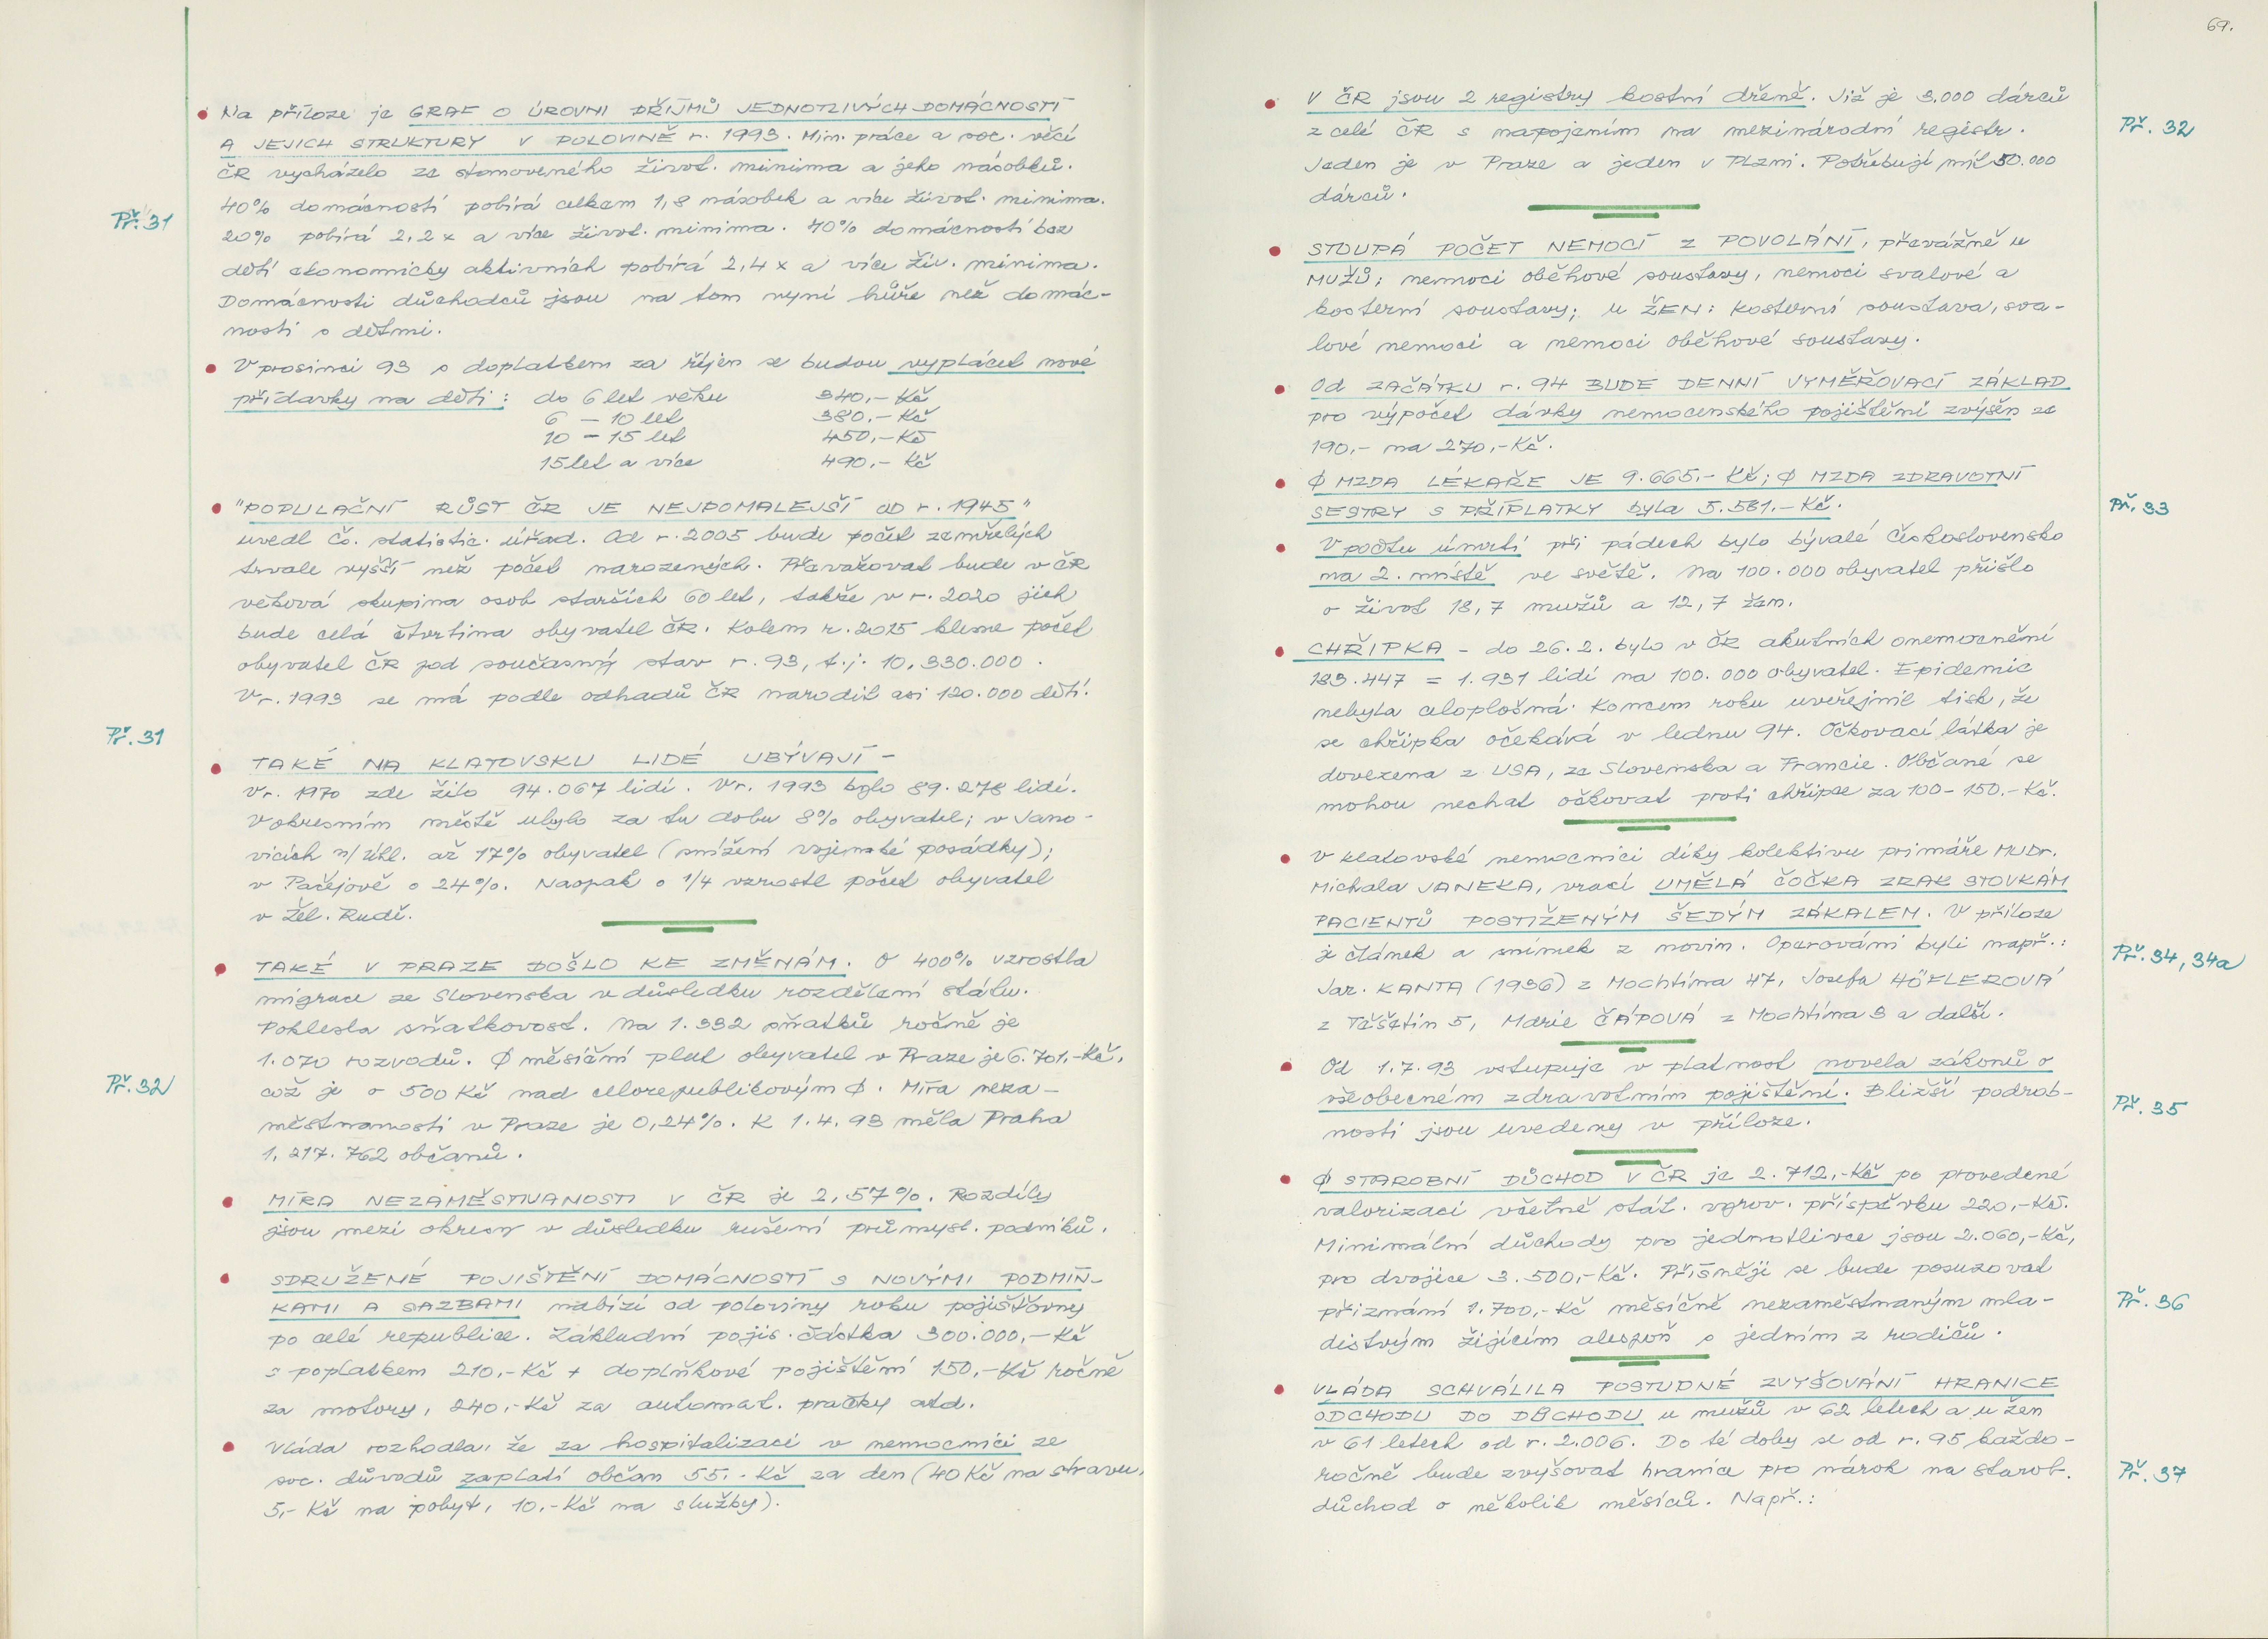 Na příloze je GRAF O ÚROVNI PŘÍJMŮ JEDNOTLIVÝCH DOMÁCNOSTÍ
A JEJICH STRUKTURY V POLOVINĚ r. 1993. Min. práce a soc. věcí
ČR vycházelo ze stanoveného život. minima a jeho násobků.
Př. 31
40% domácností pobírá celkem 1,8 násobek a více život. minima.
20% pobírá 2,2x a více život. minima. 40% domácností bez
dětí ekonomicky aktivních pobírá 2,4x a více živ. minima.
Domácnosti důchodců jsou na tom nyní hůře než domác-
nosti s dětmi.
V prosinci 93 s doplatkem za říjen se budou vyplácet nové
přídavky na děti: do 6 let věku 340,- Kč
6 - 10 let 380,- Kč
10 - 15 let 450,- Kč
15 let a více 490,- Kč
"POPULAČNÍ RŮST ČR JE NEJPOMALEJŠÍ OD r. 1945"
uvedl Č. statistic. úřad. Od r. 2005 bude počet zemřelých
trvale vyšší než počet narozených. Převažovat bude v ČR
věková skupina osob starších 60 let, takže v r. 2020 jich
bude celá čtvrtina obyvatel ČR. Kolem r. 2015 klesne počet
obyvatel ČR pod současný stav r. 93, t.j. 10.330.000.
V r. 1993 se má podle odhadů ČR narodit asi 120.000 dětí.
Př. 31
TAKÉ NA KLATOVSKU LIDÉ UBÝVAJÍ -
V r. 1970 zde žilo 94.067 lidí. V r. 1993 bylo 89.278 lidí.
V okresním městě ubylo za tu dobu 8% obyvatel; v Jano-
vicích n/Úhl. až 17% obyvatel (snížení vojenské posádky);
v Pačejově o 24%. Naopak o 1/4 vzrostl počet obyvatel
v Žel. Rudě.
TAKÉ V PRAZE DOŠLO KE ZMĚNÁM. O 400% vzrostla
migrace ze Slovenska v důsledku rozdělení státu.
Poklesla sňatkovost. Na 1.332 sňatků ročně je
1.070 rozvodů. Ø měsíční plat obyvatel v Praze je 6.701,-Kč,
Př. 32
což je o 500 Kč nad celorepublikovým Ø. Míra neza-
městnanosti v Praze je 0,24%. K 1.4.93 měla Praha
1.217.762 občanů.
MÍRA NEZAMĚSTNANOSTI V ČR je 2,57%. Rozdíly
jsou mezi okresy v důsledku rušení průmysl. podniků.
SDRUŽENÉ POJIŠTĚNÍ DOMÁCNOSTÍ S NOVÝMI PODMÍN-
KAMI A SAZBAMI nabízí od poloviny roku pojišťovny
po celé republice. Základní pojis. částka 300.000,- Kč
s poplatkem 210,-Kč + doplňkové pojištění 150,-Kč ročně
za motory, 240,-Kč za automat. pračky atd.
Vláda rozhodla, že za hospitalizaci v nemocnici ze
soc. důvodů zaplatí občan 55,- Kč za den (40 Kč na stravu,
5,- Kč na pobyt, 10,-Kč na služby).
69.
V ČR jsou 2 registry kostní dřeně. Již je 3.000 dárců
Př. 32
z celé ČR s napojením na mezinárodní registr.
Jeden je v Praze a jeden v Plzni. Potřebují mít 50.000
dárců.
STOUPÁ POČET NEMOCÍ Z POVOLÁNÍ, převážně u
MUŽŮ: nemoci oběhové soustavy, nemoci svalové a
kosterní soustavy; u ŽEN: kosterní soustava, sva-
lové nemoci a nemoci oběhové soustavy.
Od ZAČÁTKU r. 94 BUDE DENNÍ VYMĚŘOVACÍ ZÁKLAD
pro výpočet dávky nemocenského pojištění zvýšen ze
190,- na 270,-Kč.
Ø MZDA LÉKAŘE JE 9.665,- Kč; Ø MZDA ZDRAVOTNÍ
Př. 33
SESTRY S PŘÍPLATKY byla 5.581,- Kč.
V počtu úmrtí při pádech bylo bývalé Československo
na 2. místě ve světě. Na 100.000 obyvatel přišlo
o život 18,7 mužů a 12,7 žen.
CHŘIPKA - do 26.2. bylo v ČR akutních onemocnění
183.447 = 1.931 lidí na 100.000 obyvatel. Epidemie
nebyla celoplošná. Koncem roku uveřejnil tisk, že
se chřipka očekává v lednu 94. Očkovací látka je
dovezena z USA, ze Slovenska a Francie. Občané se
mohou nechat očkovat proti chřipce za 100-150,-Kč.
V klatovské nemocnici díky kolektivu primáře MUDr.
Michala JANEKA, vrací UMĚLÁ ČOČKA ZRAK STOVKÁM
PACIENTŮ POSTIŽENÝM ŠEDÝM ZÁKALEM. V příloze
Př. 34, 34a
je článek a snímek z novin. Operováni byli např.:
Jar. KANTA (1936) z Mochtína 47, Josefa HÖFLEROVÁ
z Těšetin 5, Marie ČÁPOVÁ z Mochtína 3 a další.
Od 1.7.93 vstupuje v platnost novela zákonů o
Př. 35
všeobecném zdravotním pojištění. Bližší podrob-
nosti jsou uvedeny v příloze.
Ø STAROBNÍ DŮCHOD V ČR je 2.712,-Kč po provedené
valorizaci včetně stát. vyrov. příspěvku 220,-Kč.
Minimální důchody pro jednotlivce jsou 2.060,-Kč,
pro dvojice 3.500,-Kč. Přísněji se bude posuzovat
Př. 36
přiznání 1.700,-Kč měsíčně nezaměstnaným mla-
distvým žijícím alespoň s jedním z rodičů.
VLÁDA SCHVÁLILA POSTUPNÉ ZVYŠOVÁNÍ HRANICE
ODCHODU DO DŮCHODU u mužů v 62 letech a u žen
v 61 letech od r. 2.006. Do té doby se od r. 95 každo-
Př. 37
ročně bude zvyšovat hranice pro nárok na starob.
důchod o několik měsíců. Např.: